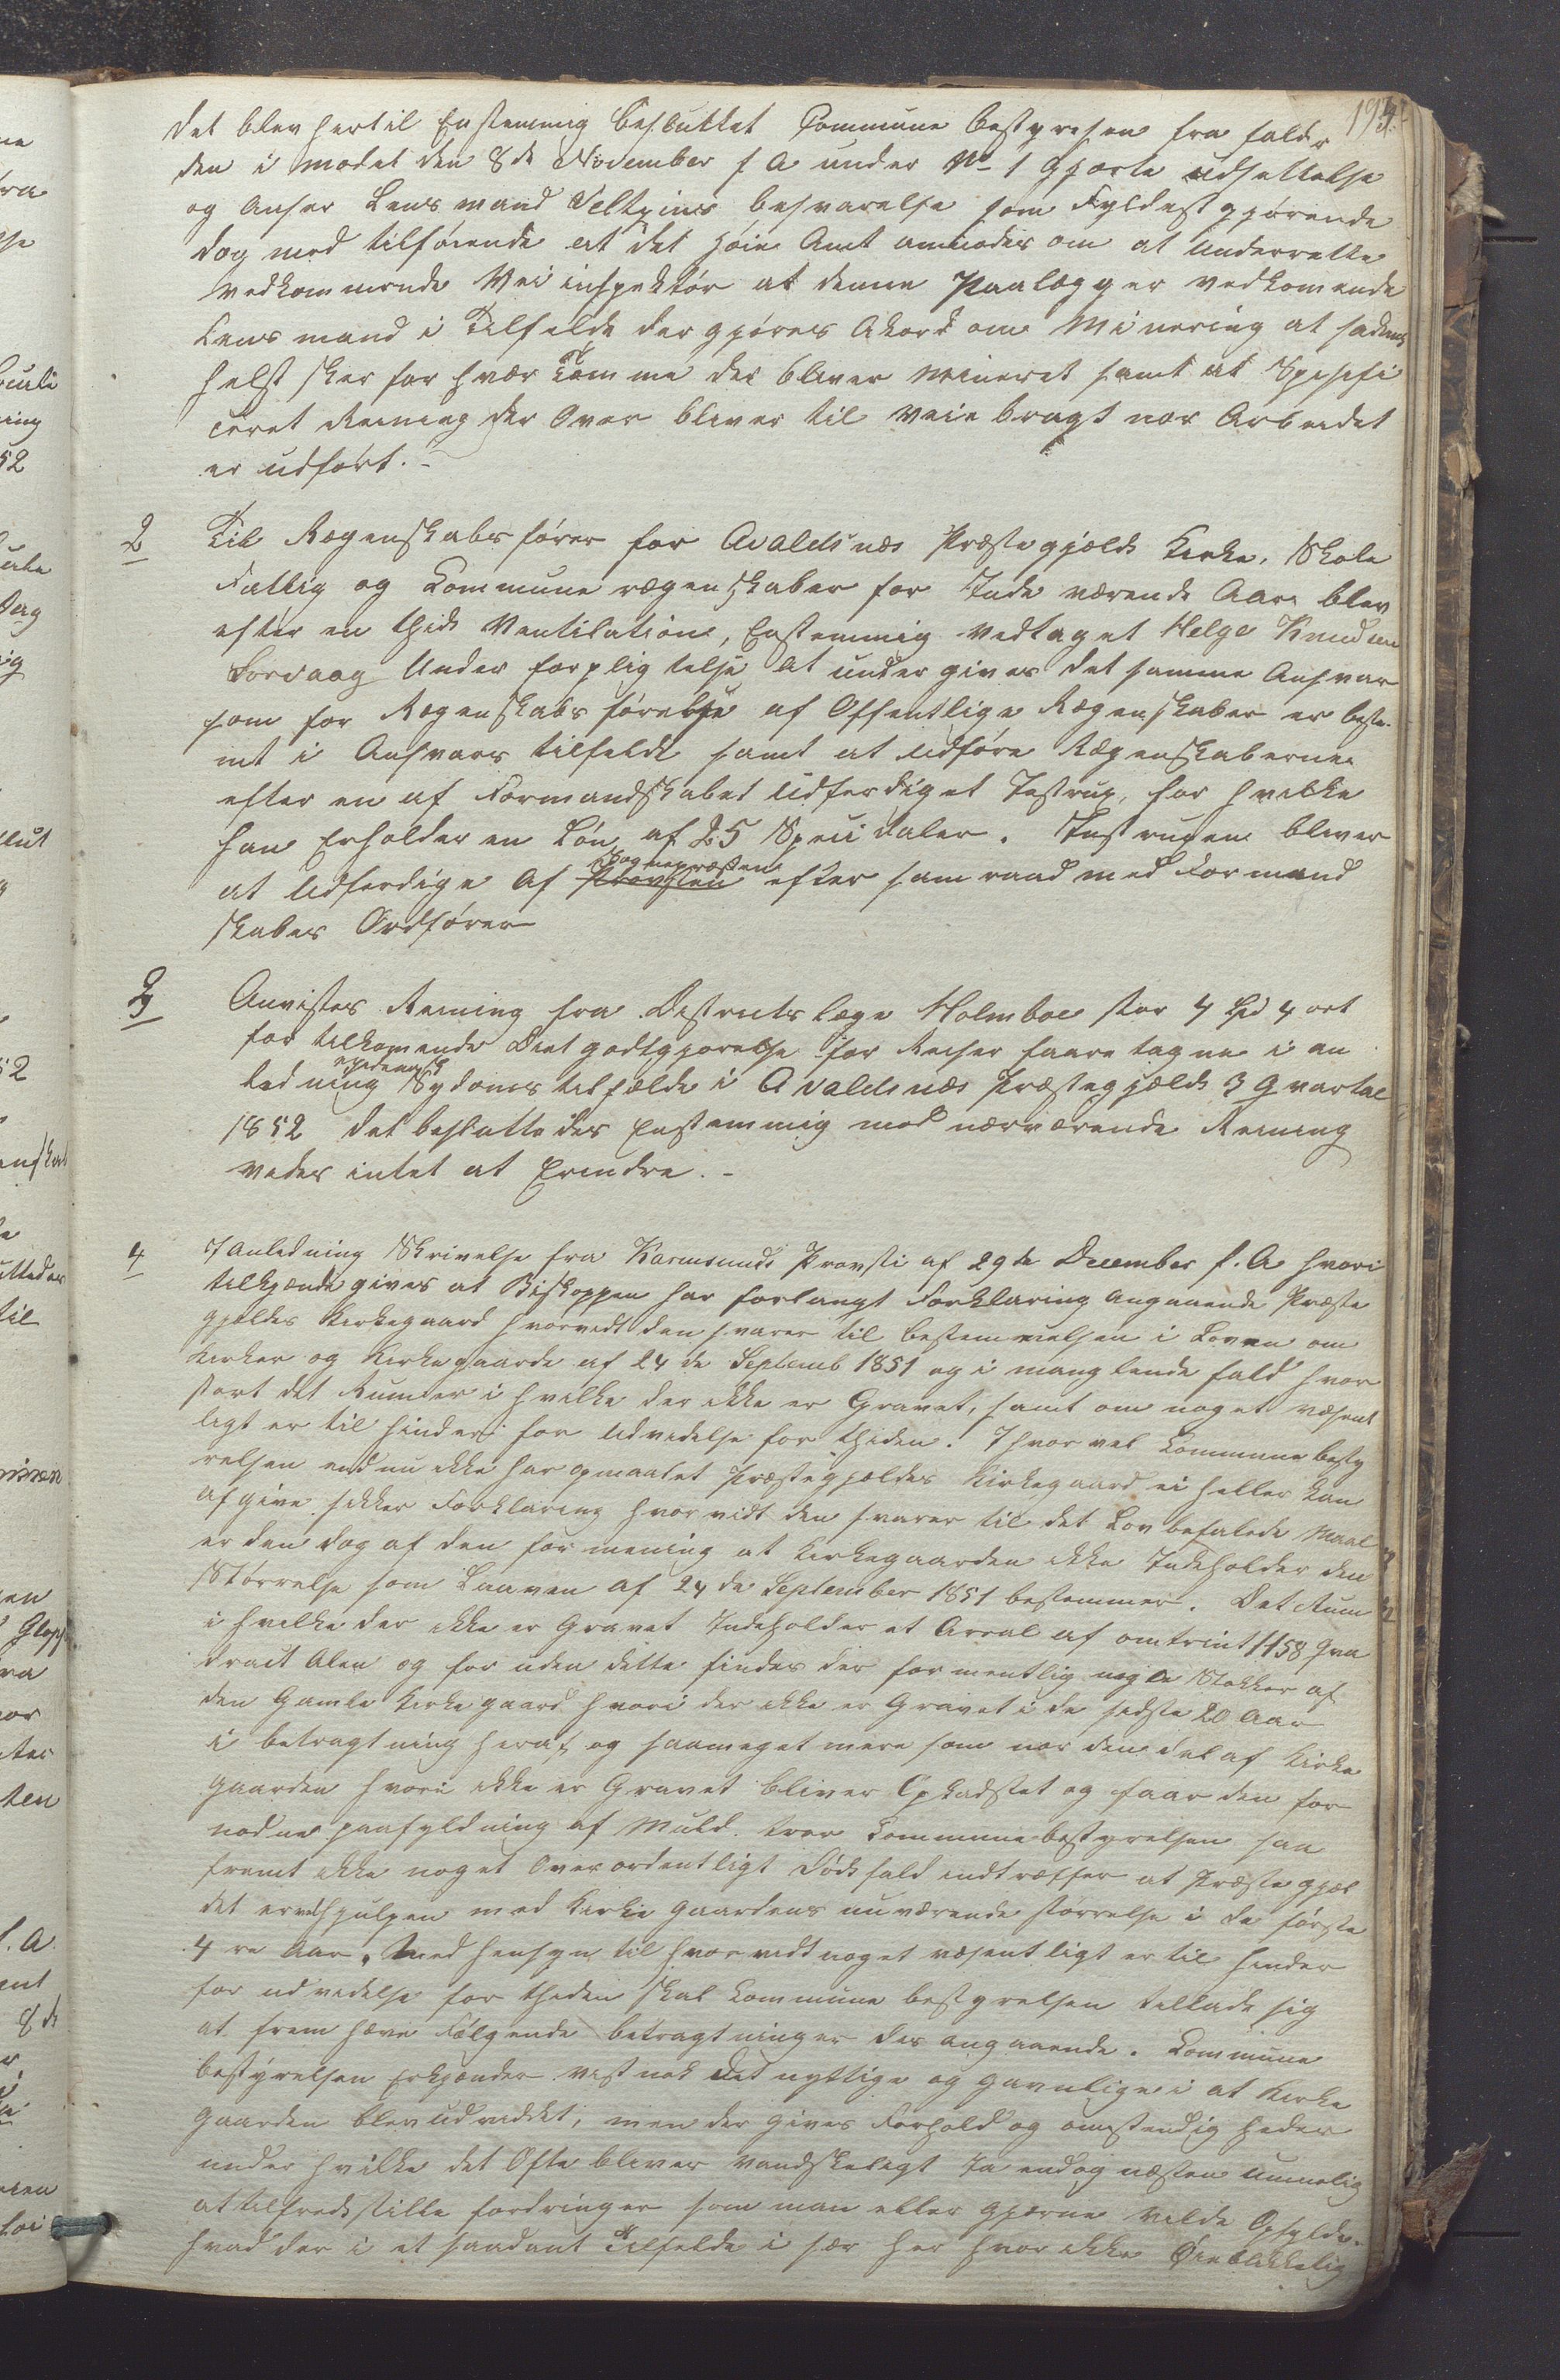 194
det blev hertil Enstemmig besluttet Commune bestyrelsen fra falder
den i mødet den 8de November f A under No 1 gjorte udsettelse
og anser Lensmand Veltzins besvarelse som Fyldestgjørende
dog med tilføiende at det høie Amt anmodes om at underrette
vedkommende Vei inspektør at denne Paalægger vedkomende
Lens mand i Tilfelde der gjøres Akord om Minering at sadant
helst sker for hvær Tomme der bliver Mineret samt at Spesefi
ceret Reining der Over bliver til veie bragt nor Arbeidet
er udført. -
2 Til Regenskabsfører for Avaldsnæs Præstegjælds Kirke, Skole
Fattig og Commune regenskaber for Inde værende Aar blev
efter en thids Ventilation, Enstemmig Vedtaget Helge Knudsen
Forvaag Under forpligtelse at undergives det samme Ansvar
som for Regenskabs førelse af Offentlige Regenskaber er beste-
mt i Ansvars tilfelde samt at udføre Regenskaberne
efter en af Formandskabet Udferdiget Instrux, for hvilke
han Erholder en Løn af 25 Speci daler. Instruxen bliver
at Udferdige Af Provsten Sognepræsten efter sam raad med Formand
skabes Ordfører
3 Anvistes Reining fra Destrikts læge Holmboe stor 4 spd 4 ort
for tilkomende Diet godtgjorelse for Reiser faaretagne i an
ledning epedemisk Sydoms tilfælde i Avaldsnæs Præstegjælds 3 Qvartal
1852 det besluttedes Enstemmig mod nærværende Reining
vedes intet at Erindre. -
4 I Anledning Skrivelse fra Karmsunds Provsti af 29de December f. A hvori
tilkjende gives at Biskoppen har forlangt Forklaring angaaende Præste
gjeldes Kirkegaard hvorvidt den svarer til bestemmelsen i Loven om
Kirker og Kirkegaarde af 24de Septemb 1851 og i manglende fald hvor
stort det Rum er i hvilke der ikke er Gravet, samt om noget væsent
ligt er til hinder for Udvidelse for thiden. Ihvorvel Commune besty
relsen endnu ikke har opmaalet Præstegjeldes Kirkegaard ei heller kan
afgive sikker Forklaring hvorvidt den svarer til det Lov befalede Maal
er den dog af den for mening at Kirkegaarden ikke Indeholder den
Størrelse som Laaven af 24de September 1851 bestemmer. Det Rum
i hvilke der ikke er Gravet Indeholder et Areal af omtrint 1158 Qva
drat Alen og for uden dette findes der formentlig nogle Stokker af
den Gamle Kirkegaard hvori der ikke er Gravet i de sidste 20 Aar
i betragtning heraf og saameget mere som nor den del af Kirke
gaarden hvori ikke er Gravet bliver Opkadstet og faar den for
nødne paafyldning af Muld. tror Commune bestyrelsen saa
fremt ikke noget Overordentligt Dødsfald indtræffer at Præste gjæl
det er vedhjulpen med Kirke Gaardens nuværende størrelse i de første
4 re Aar. Med hensyn til hvorvidt noget væsentligt er til hinder
for udvidelse for theden skal Commune bestyrelsen tillade sig
at frem hæve Følgende betragtninger der angaaende. Commune
bestyrelsen Erkjender vist nok det nyttige og Gavnlige i at Kirke
Gaarden blev udviddet, men der gives Forhold og omstendigheder
under hvilke det Ofte bliver vandskeligt Ja endog næsten Umuelig
at tilfredsstille fordringer som man ellers gjerne vilde Opfylde.
hvad der i et saadant Tilfelde i sær her hvor ikke Øieblikkelig